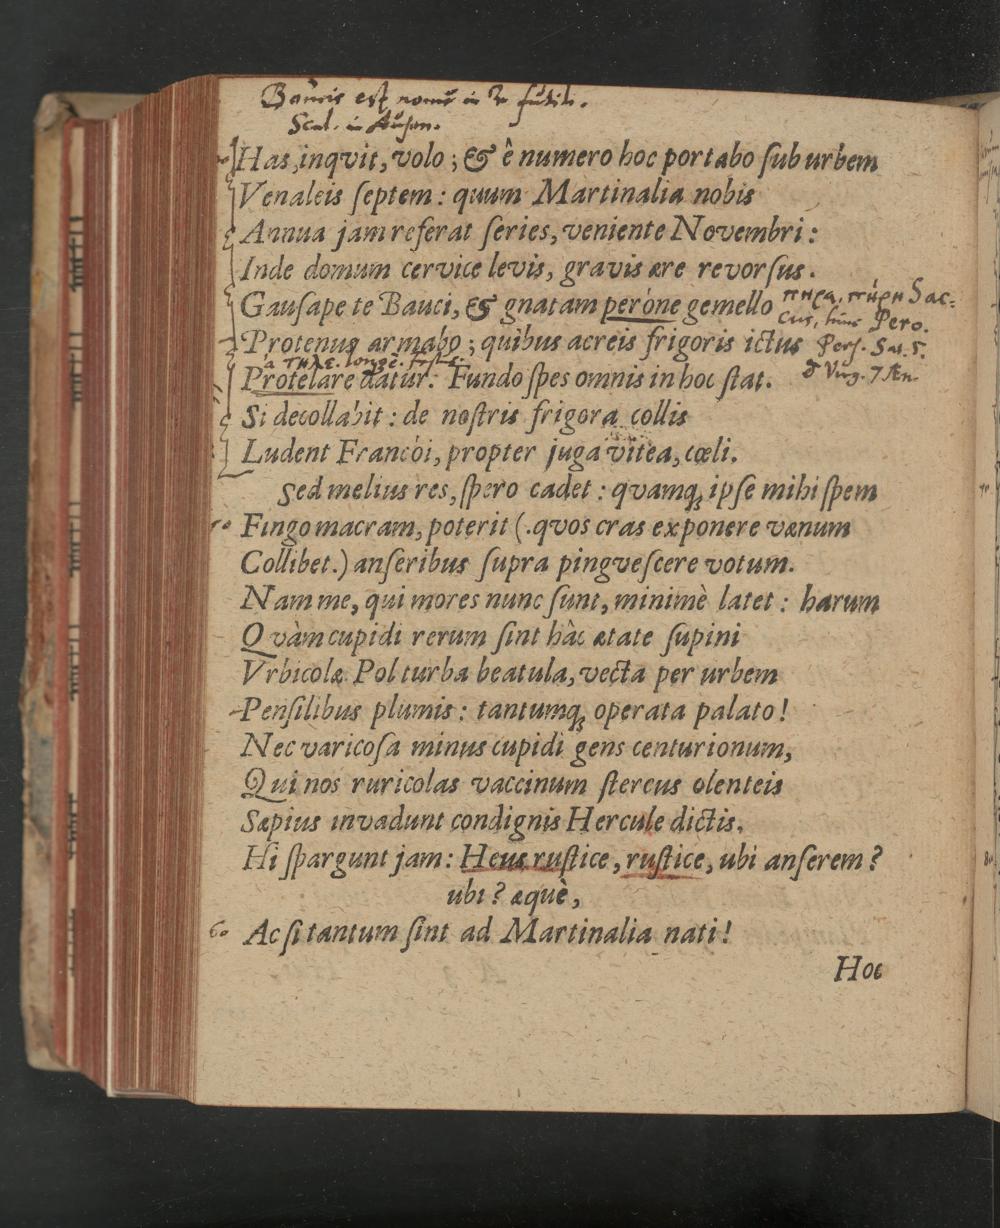 Baucis est nomē in re futili.
Scal. in Auson.
Has, inqvit, volo; & ê numero hoc portabo sub urbem
Venaleis septem: quum Martinalia nobis
Annua jam referat series, veniente Novembri:
Inde domum cervice levis, gravis ære revorsus.
Gausape te Bauci, & gnatam peróne gemello πηρα, πήρη Sac-
cus, hinc Pero.
Protenus armabo; quibus acreis frigoris ictus Pers. Sat. 5.
à τηλε. longè. & Virg. 7 Æn.
Protelare datur: Fundo spes omnis in hoc stat.
Si decollabit: de nostris frigora collis
Ludent Francói, propter juga vitea, cœli.
Sed melius res, spero cadet: qvamq; ipse mihi spem
50 Fingo macram, poterit (.qvos cras exponere vænum
Collibet.) anseribus supra pingvescere votum.
Nam me, qui mores nunc sunt, minimè latet: harum
Qvàm cupidi rerum sint hâc ætate supini
Vrbicolæ. Pol turba beatula, vecta per urbem
Pensilibus plumis: tantumq; operata palato!
Nec varicosa minus cupidi gens centurionum,
Qui nos ruricolas vaccinum stercus olenteis
Sæpius invadunt condignis Hercule dictis.
Hi spargunt jam: Heus rustice, rustice, ubi anserem?
ubi? æquè,
60 Ac si tantum sint ad Martinalia nati!
Hoc